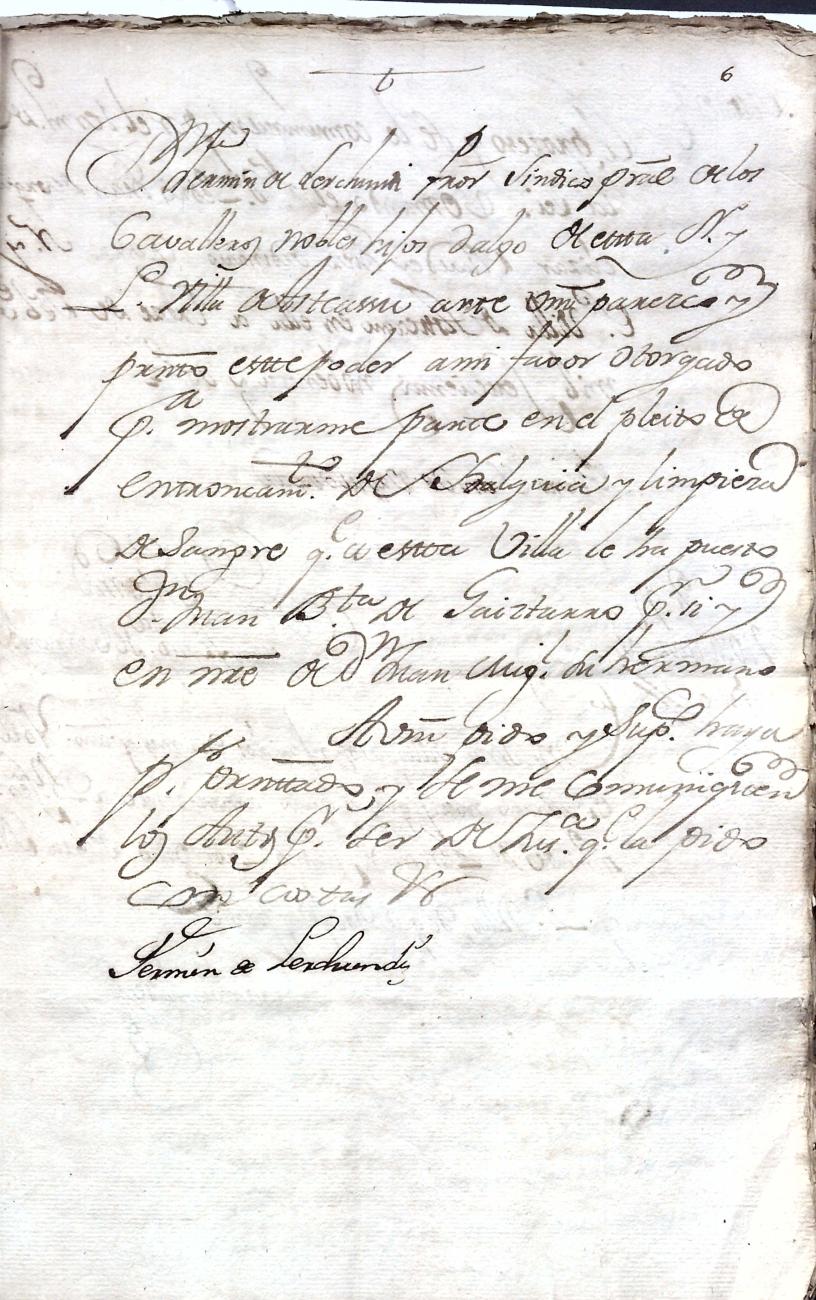 t 6
Fermin de Lerchundi Pror Sindico Gral de los
Cavalleros nobles hijos dalgo de esta N. y
L. Villa de Asteassu ante Vm parezco y
prnto este poder a mi favor otorgado
p.a mostrarme parte en el pleito de
entroncam.to de Hidalguia y limpieza
de Sangre q.e a esta Villa le ha puesto
D.n Juan B.ta de Gaiztarro P.r si y
en nre de D.n Juan Mig.l su hermano
A Vm pido y sup.co haya
p.r prntado, y se me comuniquen
los Autos p.r ser de Jus.a q.e la pido
con costas &
Fermin de Lerchundi